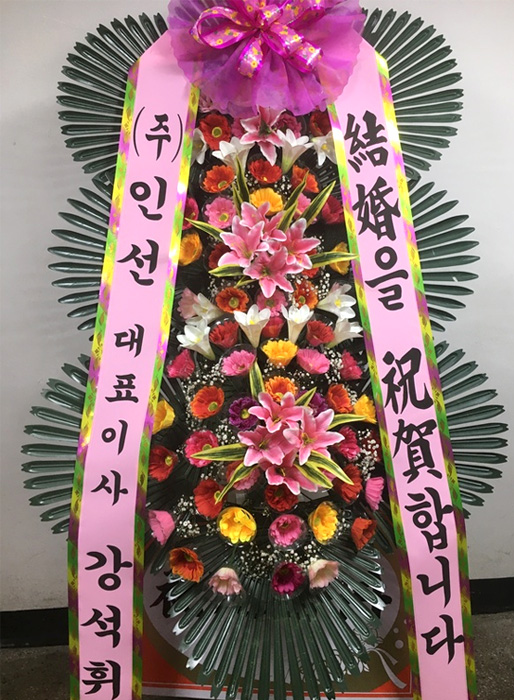 (주)인선 대표이사 강석휘
結婚을 祝賀합니다